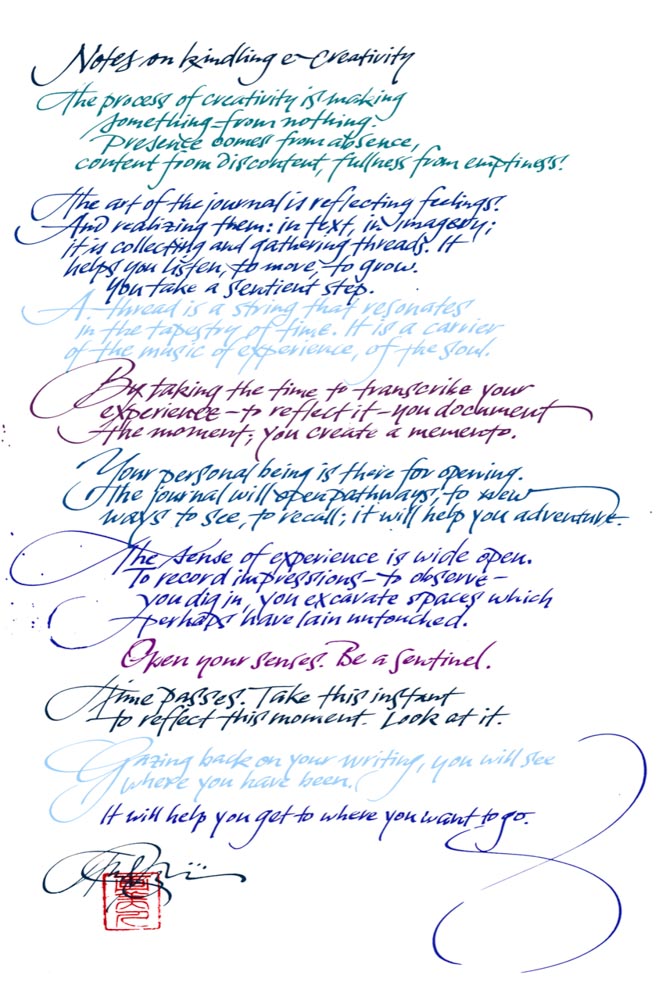 Notes on kindling e-creativity
The process of creativity is making
something from nothing.
Presence comes from absence,
content from discontent, fullness from emptiness.
The art of the journal is reflecting feelings.
And realizing them: in text, in imagery;
it is collecting and gathering threads. It
helps you listen, to move, to grow.
You take a sentient step.
A thread is a string that resonates
in the tapestry of time. It is a carrier
of the music of experience, of the soul.
By taking the time to transcribe your
experience – to reflect it – you document
the moment; you create a memento.
Your personal being is there for opening.
The journal will open pathways, to new
ways to see, to recall; it will help you adventure.
The sense of experience is wide open.
To record impressions – to observe –
you dig in, you excavate spaces which
perhaps have lain untouched.
Open your senses. Be a sentinel.
Time passes. Take this instant
to reflect this moment. Look at it.
Gazing back on your writing, you will see
where you have been.
It will help you get to where you want to go.